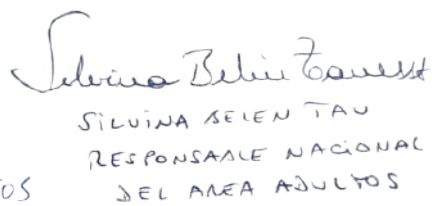 Silvina Belén
SILVINA BELEN TAU
RESPONSABLE NACIONAL
OS DEL AREA ADULTOS